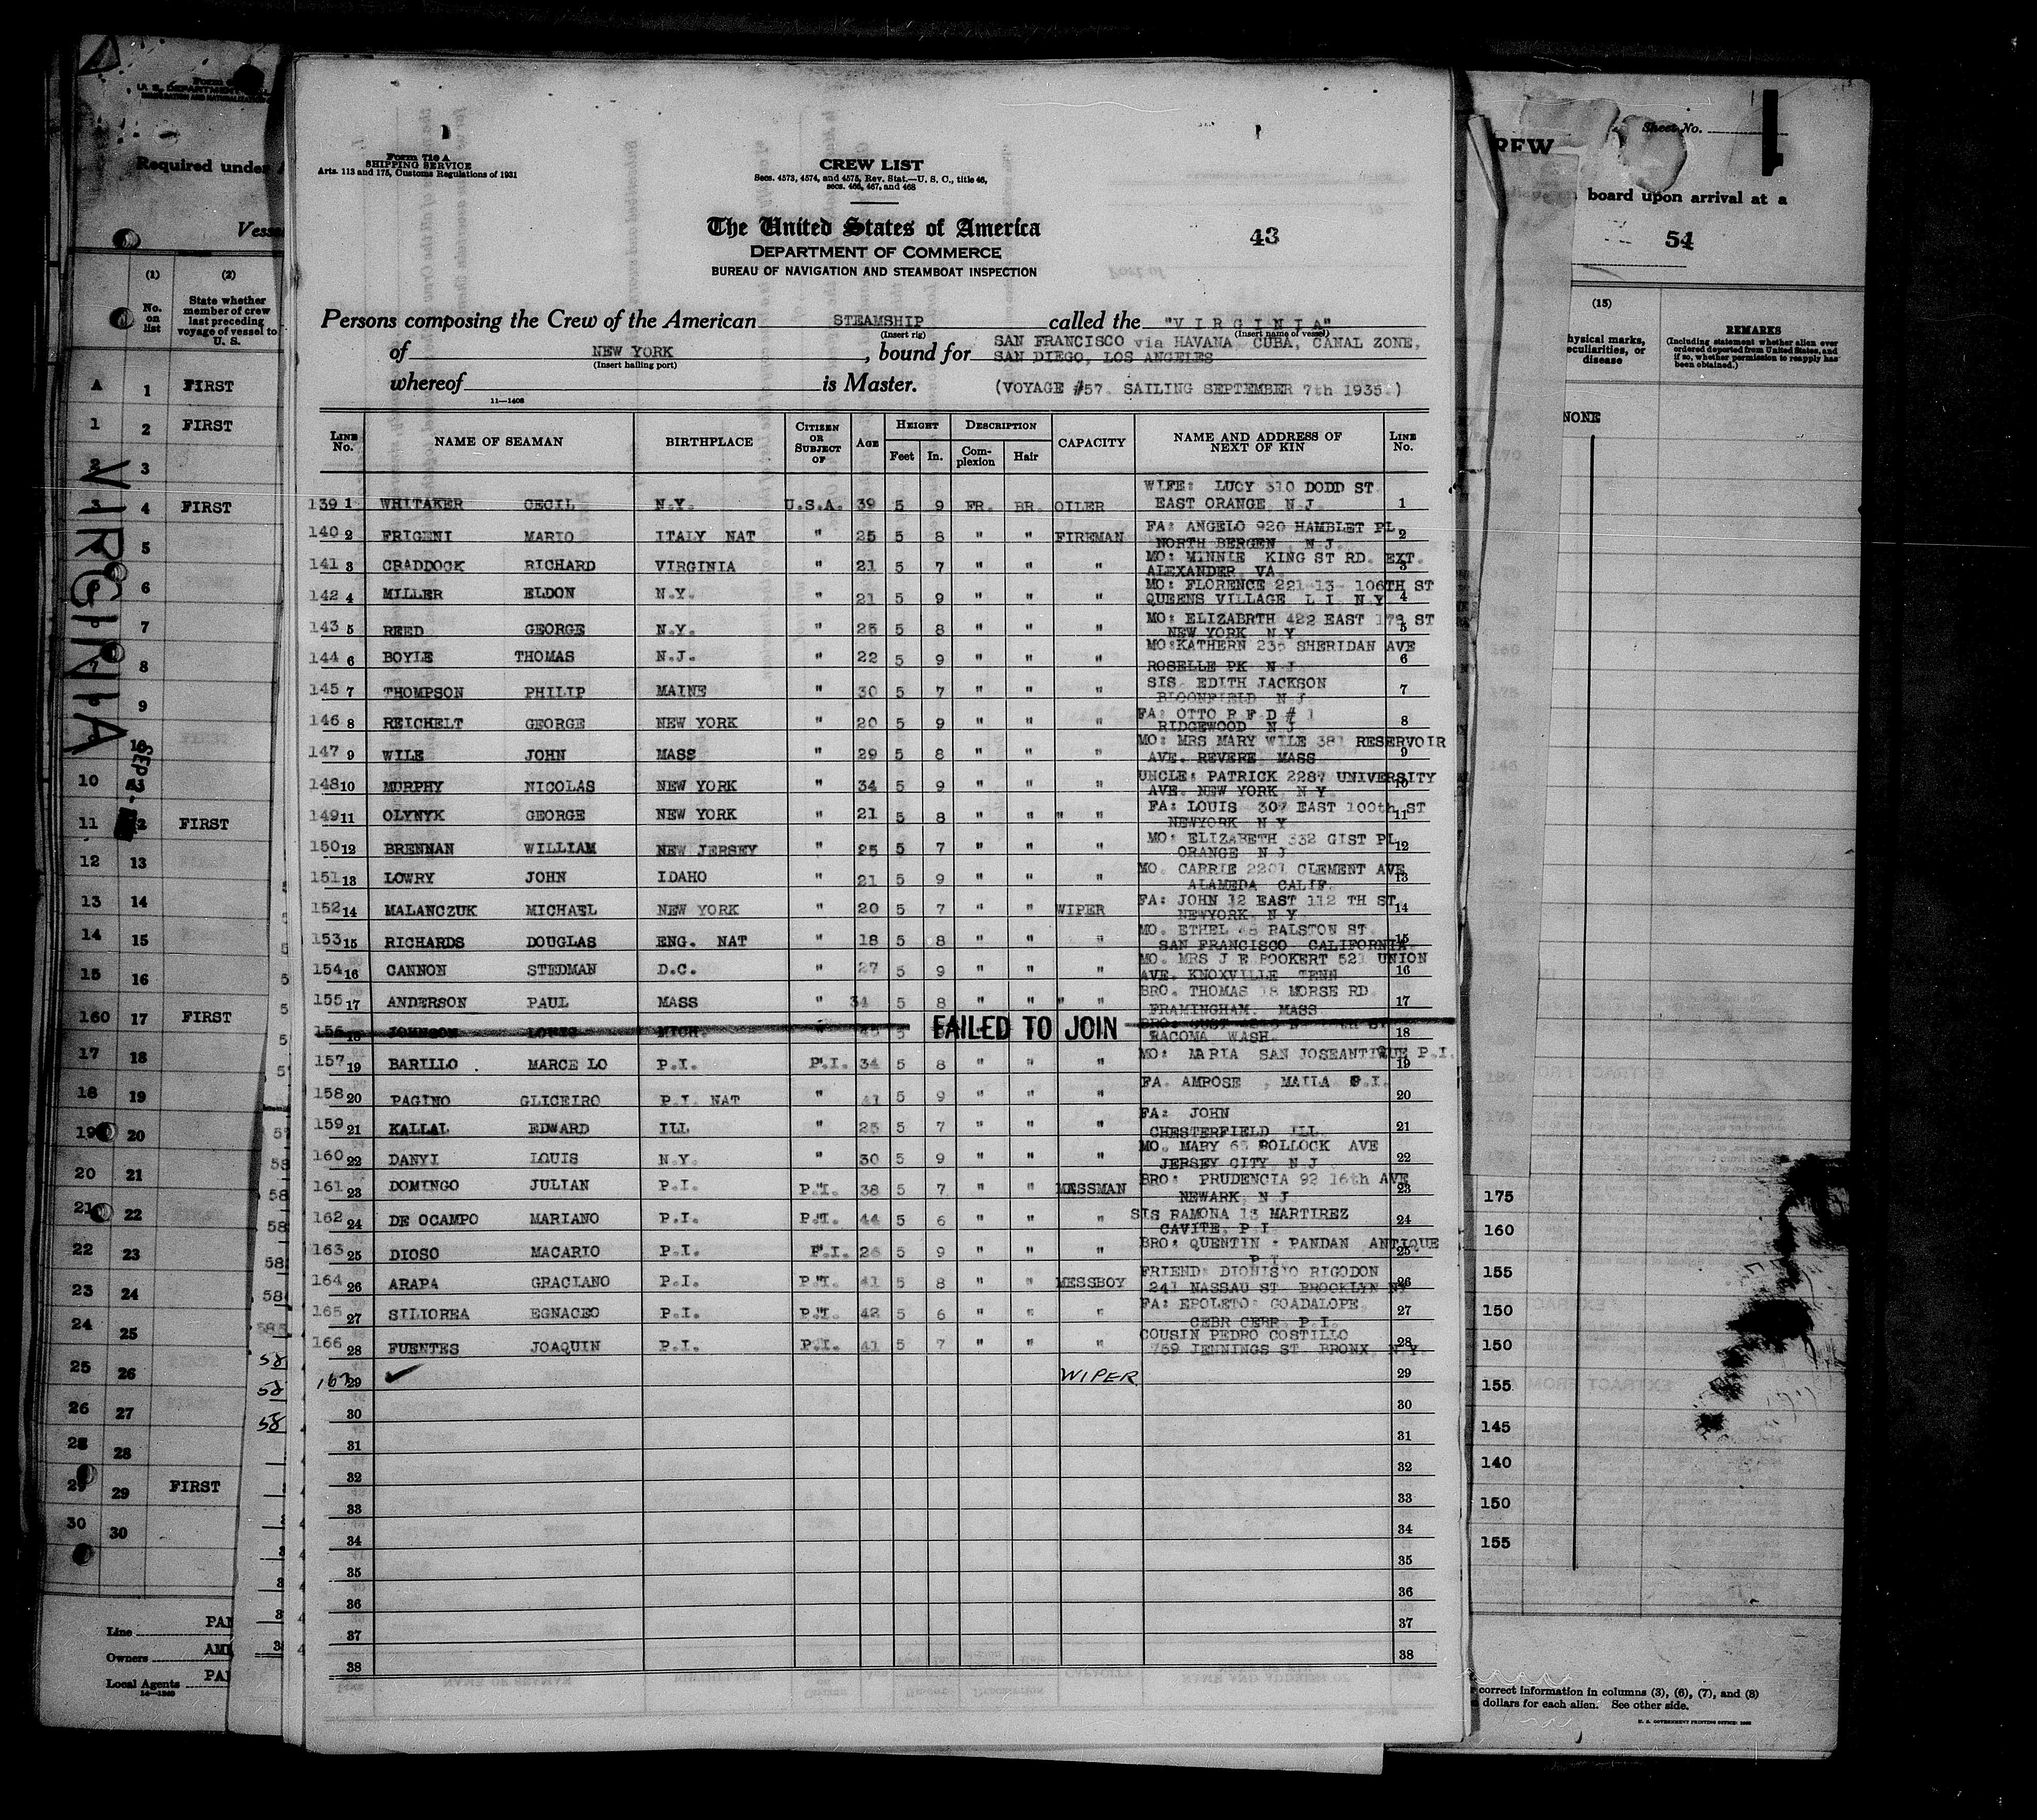 Form 710 A
SHIPPING SERVICE
Arts. 113 and 175, Customs Regulations of 1931
CREW LIST
Secs. 4573, 4574, and 4575, Rev. Stat.—U. S. C., title 46,
secs. 466, 467, and 468
The United States of America
DEPARTMENT OF COMMERCE
BUREAU OF NAVIGATION AND STEAMBOAT INSPECTION
43
Persons composing the Crew of the American STEAMSHIP called the "VIRGINIA"
(Insert rig) (Insert name of vessel)
of NEW YORK, bound for SAN FRANCISCO via HAVANA CUBA, CANAL ZONE,
SAN DIEGO, LOS ANGELES
(Insert hailing port)
whereof is Master. (VOYAGE #57. SAILING SEPTEMBER 7th 1935.)
11—1408
LINE No. NAME OF SEAMAN BIRTHPLACE CITIZEN OR SUBJECT OF AGE HEIGHT Feet In. DESCRIPTION Complexion Hair CAPACITY NAME AND ADDRESS OF NEXT OF KIN LINE No.
139 1 WHITAKER CECIL N.Y. U.S.A. 39 5 9 FR. BR. OILER WIFE: LUCY 310 DODD ST EAST ORANGE N.J. 1
140 2 FRIGENI MARIO ITALY NAT " 25 5 8 " " FIREMAN FA: ANGELO 920 HAMBLET PL NORTH BERGEN N J. 2
141 3 CRADDOCK RICHARD VIRGINIA " 21 5 7 " " " MO: MINNIE KING ST RD. EXT. ALEXANDER VA. 3
142 4 MILLER ELDON N.Y. " 21 5 9 " " " MO: FLORENCE 221-13- 106TH ST QUEENS VILLAGE L I N.Y. 4
143 5 REED GEORGE N.Y. " 25 5 8 " " " MO: ELIZABRTH 422 EAST 178 ST NEW YORK N Y 5
144 6 BOYLE THOMAS N.J. " 22 5 9 " " " MO:KATHERN 235 SHERIDAN AVE ROSELLE PK N J 6
145 7 THOMPSON PHILIP MAINE " 30 5 7 " " " SIS EDITH JACKSON BLOONFIELD N.J. 7
146 8 REICHELT GEORGE NEW YORK " 20 5 9 " " " FA: OTTO R F D # 1 RIDGEWOOD N J 8
147 9 WILE JOHN MASS " 29 5 8 " " " MO: MRS MARY WILE 381 RESERVOIR AVE. REVERE MASS 9
148 10 MURPHY NICOLAS NEW YORK " 34 5 9 " " " UNCLE: PATRICK 2287 UNIVERSITY AVE. NEW YORK N Y. 10
149 11 OLYNYK GEORGE NEW YORK " 21 5 8 " " " " FA: LOUIS 307 EAST 100th ST NEWYORK N Y 11
150 12 BRENNAN WILLIAM NEW JERSEY " 25 5 7 " " " MO: ELIZABETH 332 GIST PL ORANGE N J 12
151 13 LOWRY JOHN IDAHO " 21 5 9 " " " MO. CARRIE 2201 CLEMENT AVE ALAMEDA CALIF. 13
152 14 MALANCZUK MICHAEL NEW YORK " 20 5 7 " " WIPER FA: JOHN 12 EAST 112 TH ST NEWYORK N Y 14
153 15 RICHARDS DOUGLAS ENG. NAT " 18 5 8 " " " MO. ETHEL RALSTON ST. SAN FRANCISCO CALIFORNIA. 15
154 16 CANNON STEDMAN D.C. " 27 5 9 " " " MO. MRS J E POOKERT 521 UNION AVE. KNOXVILLE TENN 16
155 17 ANDERSON PAUL MASS " 34 5 8 " " " " BRO. THOMAS 18 MORSE RD FRAMINGHAM. MASS 17
156 18 JOHNSON LOUIS MICH. FAILED TO JOIN RACOMA WASH. 18
157 19 BARILLO . MARCE LO P.I. P.I. 34 5 8 " " " MO: MARIA SAN JOSEANTIQUE P.I. 19
158 20 PAGINO GLICEIRO P.I. NAT " 41 5 9 " " " FA. AMPOSE , MAILA P.I. 20
159 21 KALLAL EDWARD ILL " 25 5 7 " " " FA: JOHN CHESTERFIELD ILL 21
160 22 DANYI LOUIS N.Y. " 30 5 9 " " " MO. MARY 65 POLLOCK AVE JERSEY CITY N J 22
161 23 DOMINGO JULIAN P.I. P.I. 38 5 7 " " MESSMAN BRO: PRUDENCIA 92 16th AVE NEWARK N J 23
162 24 DE OCAMPO MARIANO P.I. P.I. 44 5 6 " " " SIS RAMONA 13 MARTIREZ CAVITE. P I 24
163 25 DIOSO MACARIO P.I. P.I. 26 5 9 " " " BRO: QUENTIN : PANDAN ANTIQUE P.I. 25
164 26 ARAPA GRACIANO P.I. P.I. 41 5 8 " " MESSBOY FRIEND: DIONISIO RIGODON 241 NASSAU ST BROOKLYN NY 26
165 27 SILIOREA EGNACEO P.I. P.I. 42 5 6 " " " FA: EPOLETO: GOADALOPE, CEBR CEBR P.I. 27
166 28 FUENTES JOAQUIN P.I. P.I. 41 5 7 " " " COUSIN PEDRO COSTILLO 759 JENNINGS ST BRONX N.Y. 28
167 29 ✓ WIPER 29
30 30
31 31
32 32
33 33
34 34
35 35
36 36
37 37
38 38
Required under
Vesse
(1) (2)
No. on list
State whether member of crew last preceding voyage of vessel to U. S.
A 1 FIRST
1 2 FIRST
2 3
3 4 FIRST
5
6
7
7 8
9
10
10
11 12 FIRST
12 13
13 14
14 15
15 16
160 17 FIRST
17 18
18 19
19 20
20 21
21 22
22 23
23 24
24 25
25 26
26 27
28 28
29 29 FIRST
30 30
VIRGINIA
Line PAN
Owners AME
Local Agents PAN
Sheet No.
1
REW
board upon arrival at a
54
(15)
hysical marks, peculiarities, or disease
REMARKS
(Including statement whether alien ever ordered deported from United States, and if so, whether permission to reapply has been obtained.)
NONE
175
160
155
150
150
155
145
140
150
155
correct information in columns (3), (6), (7), and (8)
dollars for each alien. See other side.
U. S. GOVERNMENT PRINTING OFFICE